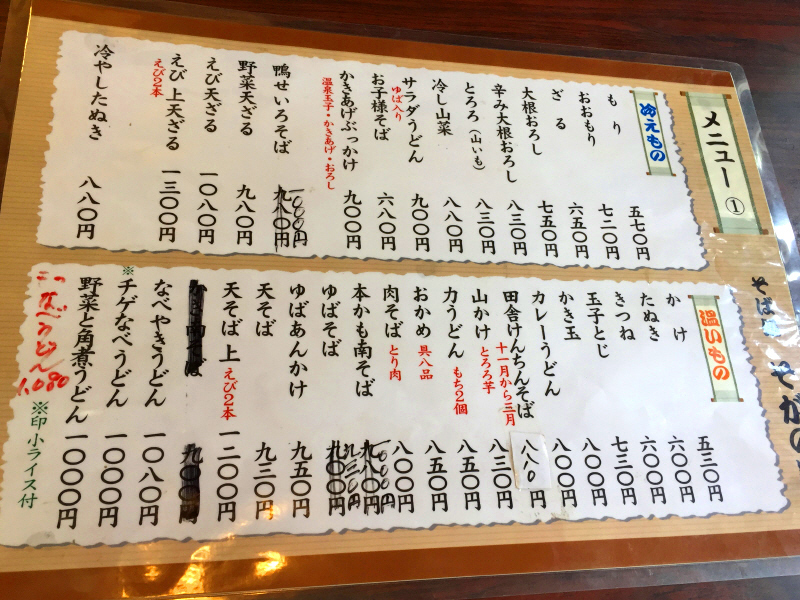 メニュー①
冷えもの
もり 五七〇円
おおもり 七二〇円
ざる 六五〇円
大根おろし 七五〇円
辛み大根おろし 八三〇円
とろろ(山いも) 八三〇円
冷し山菜 八八〇円
サラダうどん 九〇〇円
ゆば入り
お子様そば 六八〇円
かきあげぶっかけ 九〇〇円
温泉玉子・かきあげ・おろし
鴨せいろそば 九八〇円 一〇〇〇円
野菜天ざる 九八〇円
えび天ざる 一〇八〇円
えび上天ざる 一三〇〇円
えび2本
冷やしたぬき 八八〇円
温いもの
かけ 五三〇円
たぬき 六〇〇円
きつね 六〇〇円
玉子とじ 七三〇円
かき玉 八〇〇円
カレーうどん 八〇〇円
田舎けんちんそば 八八〇円
十一月から三月
山かけ とろろ芋 八三〇円
力うどん もち2個 八五〇円
おかめ 具八品 八五〇円
肉そば とり肉 八〇〇円
本かも南そば 九八〇円 一〇〇〇円
ゆばそば 九〇〇円
ゆばあんかけ 九五〇円
天そば 九三〇円
天そば 上 えび2本 一二〇〇円
なべやきうどん 一〇八〇円
※チゲなべうどん 一〇〇〇円
野菜と角煮うどん 一〇〇〇円
なべうどん 1,080
※印小ライス付